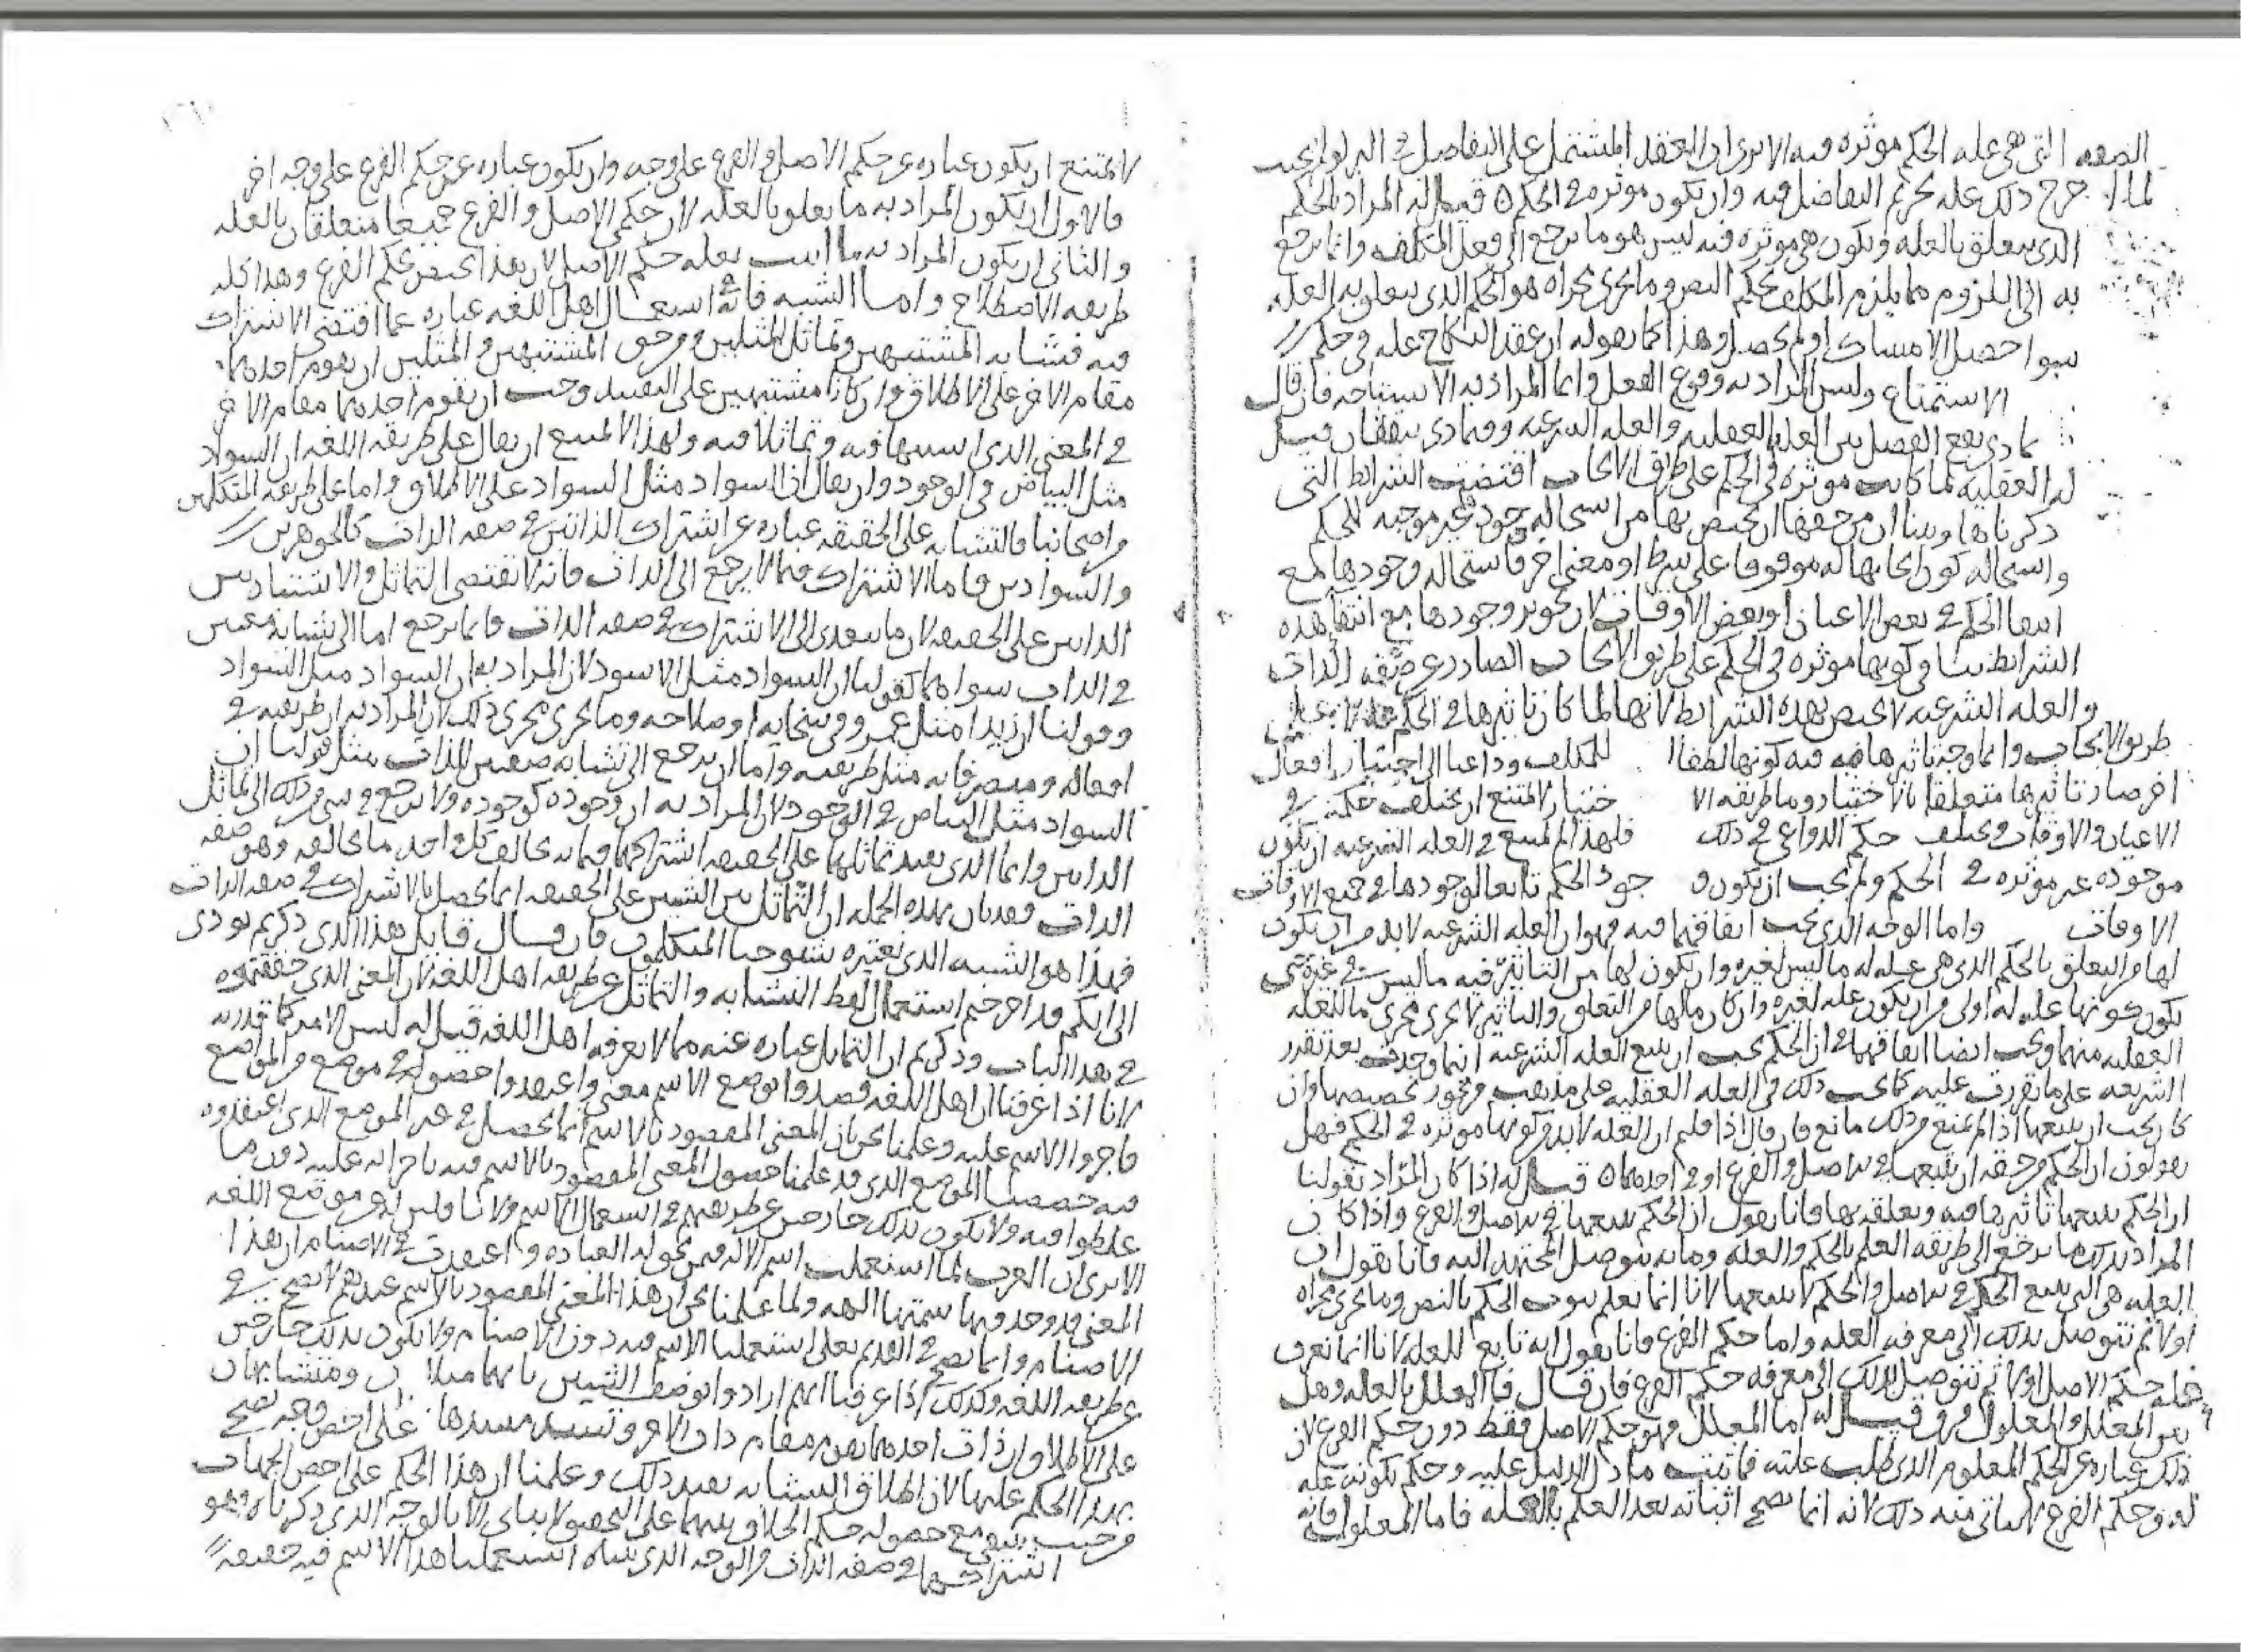 الصفه التى هى عله الحكم موثره فيه الا ترى ان العقد المشتمل على التفاضل فى البر لو لم يجب
لما خرج ذلك عله تحريم التفاضل فيه وان تكون موثره فى الحكم ه قيل له المراد بالحكم
الذى يتعلق بالعله وتكون هى موثره فيه ليس هو ما يرجع الى فعل المكلف وانما يرجع
به الى اللزوم مما يلزم المكلف بحكم النص وما يجرى مجراه هو الحكم الذى يتعلق به العله
سوا حصل الامساك او لم يحصل وهذا كما نقوله ان عقد النكاح عله فى حكم
الاستمتاع وليس المراد به وقوع الفعل وانما المراد به الاستباحه فان قال
بماذى يقع الفصل بين العله العقليه والعله الشرعيه وفيماذى يتفقان قيل
له العقليه لما كانت موثره فى الحكم على طريق الايجاب اقتضت الشرائط التى
ذكرناها وبينا ان من حقها ان يختص بها من استحاله وجود غير موجبه للحكم
واستحاله كون ايجابها له موقوفا على شرط او معنى اخر فاستحاله وجودها مع
انتفا الحكم فى بعض الاعيان او بعض الاوقات لان تجويز وجودها مع انتفا هذه
الشرائط ينافى كونها موثره فى الحكم على طريق الايجاب الصادر عن صفه الذات
والعله الشرعيه لا تختص بهذه الشرائط لانها لما كان تاثيرها فى الحكم لا على
طريق الايجاب وانما وجه تاثيرها فيه كونها لطفا للمكلف وداعيا الى اختيار افعال
اخر صار تاثيرها متعلقا بالاختيار وما طريقه الاختيار لا يمتنع ان يختلف حكمه فى
الاعيان والاوقات ويختلف حكم الدواعى فى ذلك فلهذا لم يمتنع فى العله الشرعيه ان تكون
موجوده غير موثره فى الحكم ولم يجب ان يكون وجود الحكم تابعا لوجودها فى جميع الاوقات
الاوقات واما الوجه الذى يجب اتفاقهما فيه فهو ان العله الشرعيه لا بد من ان يكون
لها من التعلق بالحكم الذى هى عله له ما ليس لغيره وان يكون لها من التاثير فيه ما ليس فى غيره حتى
يكون كونها عله له اولى من ان يكون عله لغيره وان كان ما لها من التعلق والتاثير لا يجرى مجرى ما للعله
العقليه منهما ويجب ايضا اتفاقهما فى ان الحكم يجب ان يتبع العله الشرعيه اينما وجدت بعد تقدر
الشريعه على ما تقررت عليه كما يجب ذلك فى العله العقليه على مذهب من يجوز تخصيصها وان
كان يجب ان يتبعها اذا لم يمنع من ذلك مانع فان قال اذا قلتم ان العله لا بد من كونها موثره فى الحكم فهل
تقولون ان الحكم من حقه ان يتبعها فى الاصل والفرع او فى احدهما ه قيل له اذا كان المراد بقولنا
ان الحكم يتبعها تاثيرها فيه وتعلقه بها فانا نقول ان الحكم يتبعها فى الاصل والفرع واذا كان
المراد بذلك ما يرجع الى طريقه العلم بالحكم والعله وما به يتوصل المجتهد اليه فانا نقول ان
العله هى التى تتبع الحكم فى الاصل والحكم لا يتبعها لانا انما نعلم ثبوت الحكم بالنص وما يجرى مجراه
اولا ثم نتوصل بذلك الى معرفه العله واما حكم الفرع فانا نقول انه تابع للعله لانا انما نعرف
عله حكم الاصل اولا ثم نتوصل بذلك الى معرفه حكم الفرع فان قال فما المعلل بالعله وهل
بين المعلل والمعلول فرق قيل له اما المعلل فهو حكم الاصل فقط دون حكم الفرع لان
ذلك عباره عن الحكم المعلوم الذى طلبت علته فاثبت ما دل الدليل عليه وحكم بكونه عله
له وحكم الفرع لا يتاتى فيه ذلك لانه انما يصح اثباته بعد العلم بالعله فاما المعلول فانه
لا يمتنع ان يكون عباره عن حكم الاصل والفرع على وجه وان يكون عباره عن حكم الفرع على وجه اخر
فالاول ان يكون المراد به ما يعلق بالعله لان حكمى الاصل والفرع جميعا متعلقان بالعله
والثانى ان يكون المراد به ما اثبت بعله حكم الاصل لان هذا يختص بحكم الفرع وهذا كله
طريقه الاصطلاح واما الشبه فانه فى استعمال اهل اللغه عباره عما اقتضى الاشتراك
فيه تشابه المشتبهين وتماثل المثلين ومن حق المشتبهين والمثلين ان يقوم احدهما
مقام الاخر على الاطلاق وان كانا مشتبهين على التقييد وجب ان يقوم احدهما مقام الاخر
فى المعنى الذى اشتبها فيه وتماثلا فيه ولهذا لا يمتنع ان يقال على طريقه اللغه ان السواد
مثل البياض فى الوجود وان يقال ان السواد مثل السواد على الاطلاق واما على طريقه المتكلمين
من اصحابنا فالتشابه على الحقيقه عباره عن اشتراك الذاتين فى صفه الذات كالجوهرين
والسوادين فاما الاشتراك فيما لا يرجع الى الذات فانه لا يقتضى التماثل والاشتباه بين
الذاتين على الحقيقه لان ما يتعدى الى الاشتراك فى صفه الذات فانما يرجع اما الى تشابه معنيين
فى الذات سواهما كقولنا ان السواد مثل الاسود لان المراد به ان السواد مثل السواد
وقولنا ان زيدا مثل عمرو فى سخائه او صلاحه وما يجرى مجرى ذلك لان المراد به ان طريقته فى
افعاله ومتصرفاته مثل طريقته واما ان يرجع الى تشابه صفتين للذات مثل قولنا ان
السواد مثل البياض فى الوجود لان المراد به ان وجوده كوجوده ولا يرجع فى شى من ذلك الى تماثل
الذاتين وانما الذى يفيد تماثلهما على الحقيقه اشتراكهما فيما به يخالف كل واحد ما يخالفه وهو صفه
الذات فقد بان بهذه الجمله ان التماثل بين الشيئين على الحقيقه انما يحصل بالاشتراك فى صفه الذات
فهذا هو الشبه الذى يعتبره شيوخنا المتكلمون فان قال قائل هذا الذى ذكرتم يودى
الى انكم قد اخرجتم استعمال لفظ التشابه والتماثل عن طريقه اهل اللغه لان المعنى الذى حققتموه
فى هذا الباب وذكرتم ان التماثل عباره عنه مما لا يعرفه اهل اللغه قيل له ليس الامر كما قدرته
لانا اذا عرفنا ان اهل اللغه قصدوا بوضع الاسم معنى واعتقدوا حصوله فى موضع من المواضع
فاجروا الاسم عليه وعلمنا نحن ان المعنى المقصود بالاسم انما يحصل فى غير الموضع الذى اعتقدوه
فيه خصصنا الموضع الذى قد علمنا حصول المعنى المقصود بالاسم فيه باجرائه عليه دون ما
غلطوا فيه ولا نكون بذلك خارجين عن طريقهم فى استعمال الاسم ولا ناقلين له عن موضع اللغه
الا ترى ان العرب لما استعملت اسم الاله فيمن تحق له العباده واعتقدت فى الاصنام ان هذا
المعنى قد وجد فيها سمتها الهه ولما علمنا نحن ان هذا المعنى المقصود بالاسم عندهم لا يصح فى
الاصنام وانما يصح فى القديم تعالى استعملنا الاسم فيه دون الاصنام ولا نكون بذلك خارجين
عن طريقه اللغه وكذلك اذا عرفنا انهم ارادوا بوصف الشيئين بانهما مثلان ومتشابهان
على الاطلاق ان ذات احدهما يقوم مقام ذات الاخر وتسد مسدها على اخص وجه يصح
بهذا الحكم عليها لان اطلاق التشابه يفيد ذلك وعلمنا ان هذا الحكم على اخص الجهات
من حيث ينتفى مع حصوله حكم الخلاف بينهما على التحقيق لا يتاتى الا بالوجه الذى ذكرناه وهو
اشتراكهما فى صفه الذات والوجه الذى بيناه استعملنا هذا الاسم فيه حقيقه